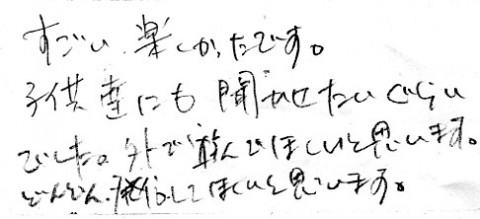 すごい楽しかったです。
子供達にも聞かせたいぐらい
でした。外で遊んでほしいと思います。
どんどん発信してほしいと思っています。